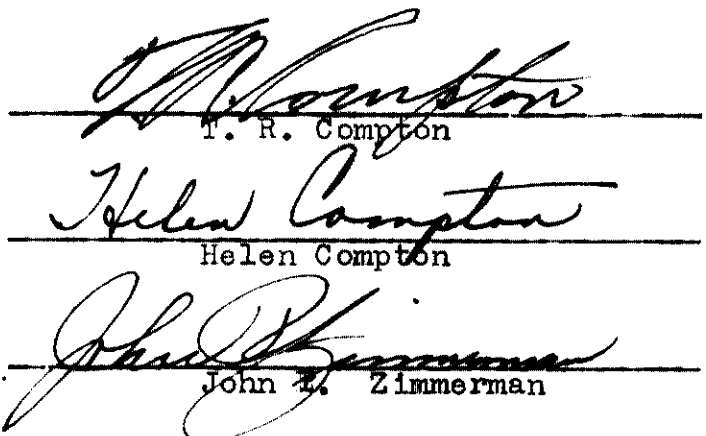 T. R. Compton
T. R. Compton
Helen Compton
Helen Compton
John Zimmerman
John Zimmerman